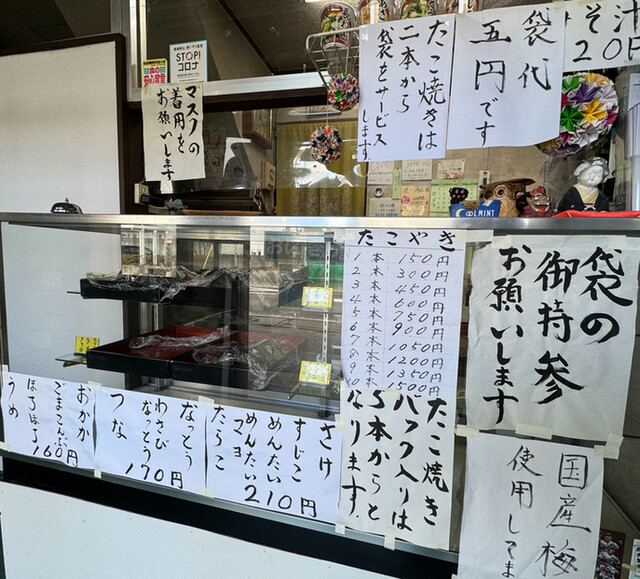 STOP!
コロナ
マスクの
着用を
お願いします
たこ焼きは
二本から
袋をサービス
します
袋代
五円です
そ汁
20円
COOL MINT
たこやき
1本 150円
2本 300円
3本 450円
4本 600円
5本 750円
6本 900円
7本 1050円
8本 1200円
9本 1350円
10本 1500円
袋の
御持参
お願いします
たこ焼き
パック入りは
5本からと
なります
国産梅
使用してま
さけ
すじこ
めんたい
めんたい
マヨ
たらこ
210円
なっとう
わさび
なっとう
つな
170円
おかか
ごまこんぶ
ほろほろ
うめ
160円